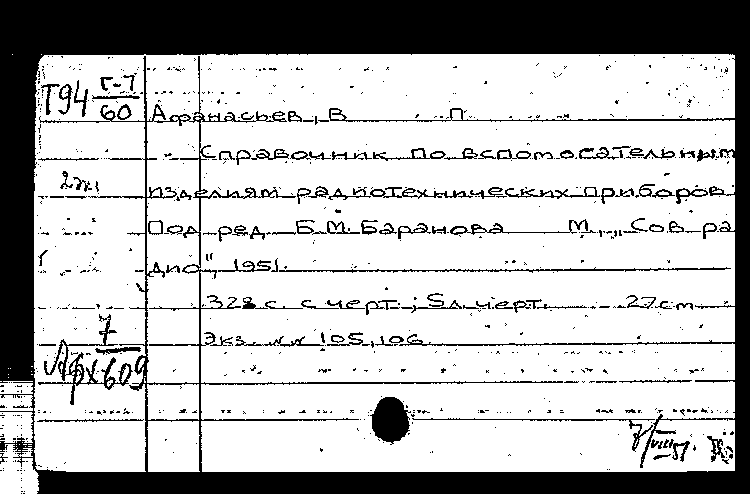 Т94 Г-7
60
Афанасьев, В П
Справочник по вспомогательным
2 экз.
изделиям радиотехнических приборов.
Под ред Б.М. Баранова М., „Сов ра
дио", 1951.
328 с. с черт.; 5 л. черт. 27 cm
7
Экз. №№ 105,106
Афх 609
7/VIII 51.